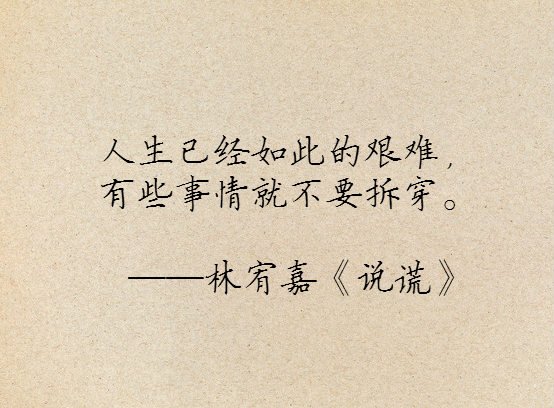 人生已经如此的艰难，
有些事情就不要拆穿。
——林宥嘉《说谎》